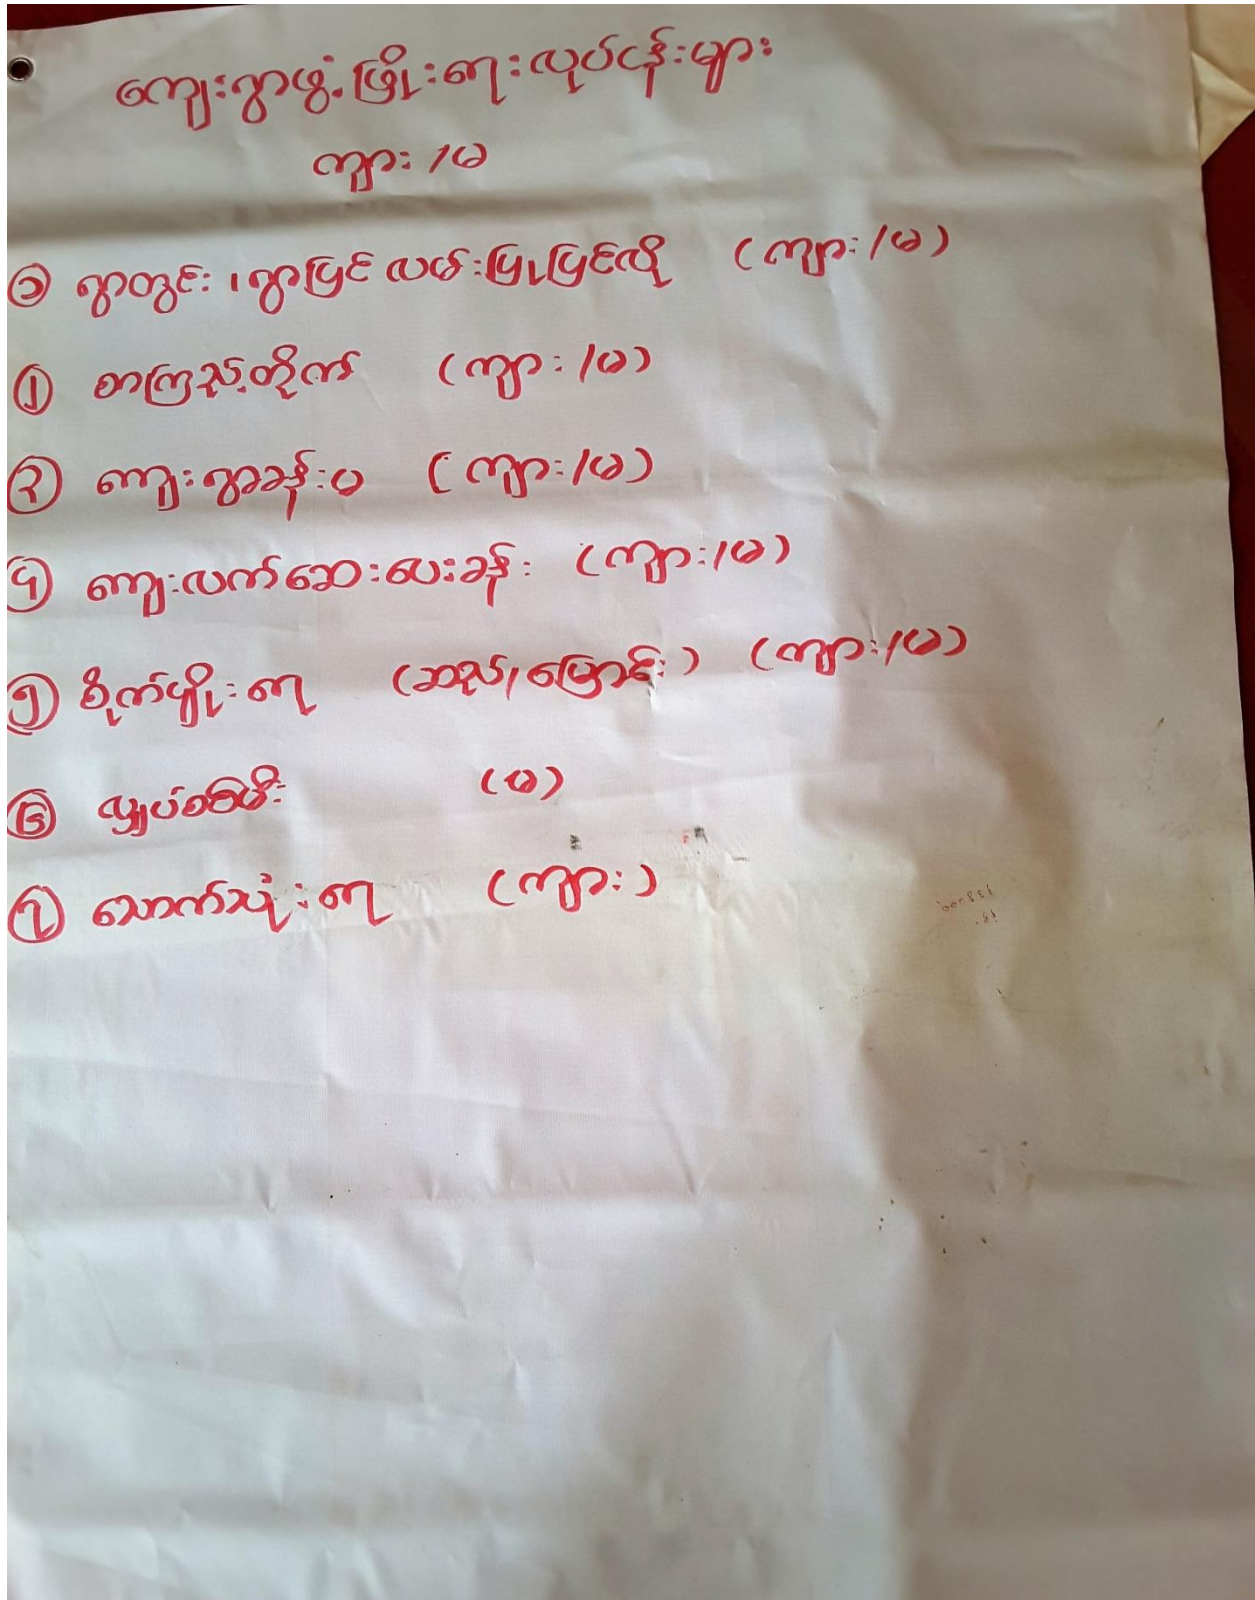 ကျေးရွာဖွံ့ဖြိုးရေးလုပ်ငန်းများ
ကျား/မ
၁ ရွာတွင်း၊ ရွာပြင် လမ်းပြုပြင်လို (ကျား/မ)
၂ စာကြည့်တိုက် (ကျား/မ)
၃ ကျေးရွာခန်းမ (ကျား/မ)
၄ ကျေးလက်ဆေးပေးခန်း (ကျား/မ)
၅ စိုက်ပျိုးရေ (ဆည်/မြောင်း) (ကျား/မ)
၆ လျှပ်စစ်မီး (မ)
၇ သောက်သုံးရေ (ကျား)